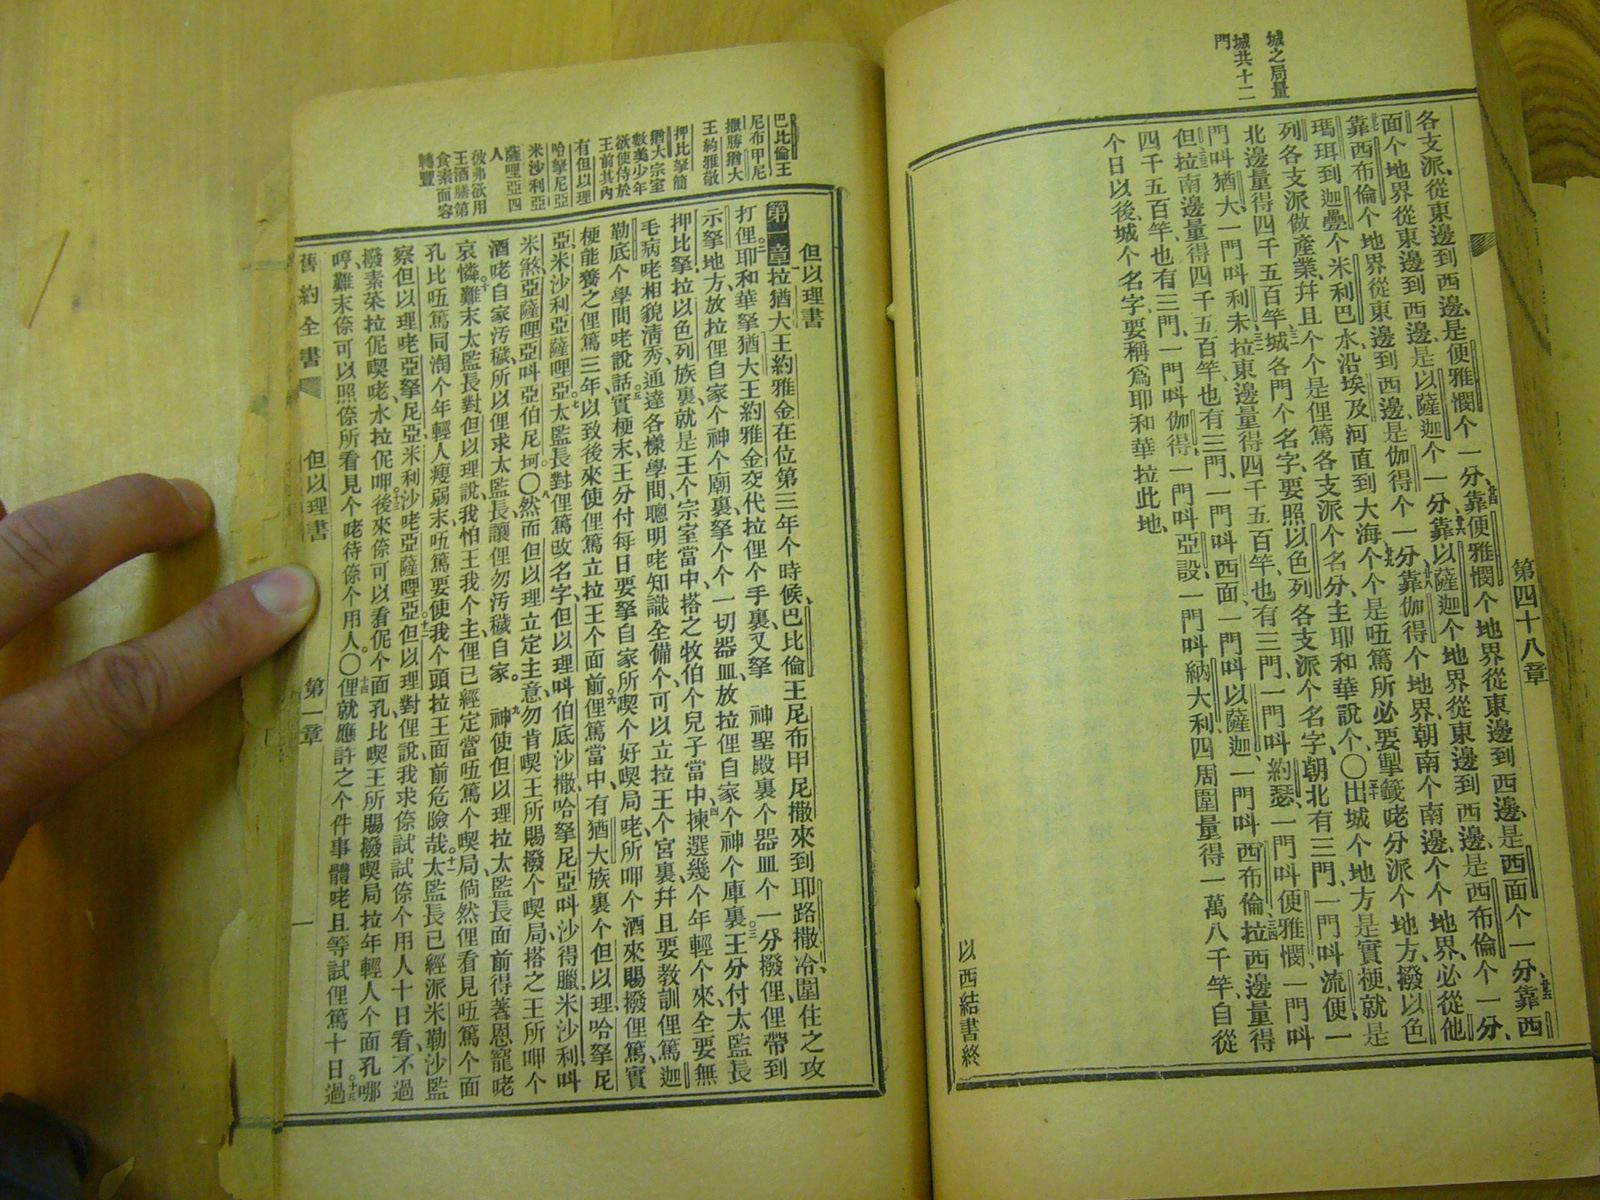 第四十八章
城之局量
城共十二
門
各支派、從東邊到西邊、是便雅憫个一分、靠便雅憫个地界從東邊到西邊、是西面个一分、靠西
面个地界從東邊到西邊、是以薩迦个一分、靠以薩迦个地界從東邊到西邊、是西布倫个一分、
靠西布倫个地界從東邊到西邊、是伽得个一分、靠伽得个地界、朝南个南邊个个地界、必從他
瑪珥到迦疊个米利巴水、沿埃及河直到大海个、个是㕶篤所必要掣籤咾分派个地方、撥以色
列各支派做產業、幷且个个是俚篤各支派个名分、主耶和華說个、〇出城个地方、是實梗、就是
北邊量得四千五百竿、城各門个名字、要照以色列各支派个名字、朝北有三門、一門呌流便、一
門呌猶大、一門呌利未、拉東邊量得四千五百竿、也有三門、一門呌約瑟、一門呌便雅憫、一門呌
但、拉南邊量得四千五百竿、也有三門、一門呌西面、一門呌以薩迦、一門呌西布倫、拉西邊量得
四千五百竿、也有三門、一門呌伽得、一門呌亞設、一門呌納大利、四周圍量得一萬八千竿、自從
个日以後、城个名字、要稱爲耶和華拉此地、
以西結書終
巴比倫王
尼布甲尼
撒勝猶大
王約雅敬
押比拏簡
猶大宗室
數美少年
欲使侍於
王前其內
有但以理
哈拏尼亞
米沙利亞
薩哩亞四
人
彼弗欲用
王酒膳第
食素面容
轉豐
但以理書
第一章拉猶大王約雅金在位第三年个時候、巴比倫王尼布甲尼撒來到耶路撒冷、圍住之攻
打俚、耶和華拏猶大王約雅金交代拉俚个手裏、又拏 神聖殿裏个器皿个一分撥俚、俚帶到
示拏地方、放拉俚自家个神个廟裏、拏个个一切器皿放拉俚自家个神个庫裏、王分付太監長
押比拏、拉以色列族裏、就是王个宗室當中、搭之牧伯个兒子當中、揀選幾个年輕个來、全要無
毛病咾相貌淸秀、通達各樣學問、聰明咾知識全備个、可以立拉王个宮裏、幷且要教訓俚篤迦
勒底个學問咾說話、實梗末、王分付每日要拏自家所喫个好喫局咾、所呷个酒來賜撥俚篤、實
梗能養之俚篤三年、以致後來使俚篤立拉王个面前、俚篤當中、有猶大族裏个但以理、哈拏尼
亞、米沙利亞、薩哩亞、太監長對俚篤改名字、但以理呌伯底沙撒、哈拏尼亞呌沙得臘、米沙利、呌
米煞、亞薩哩亞呌亞伯尼坷、〇然而但以理立定主意、勿肯喫王所賜撥个喫局、搭之王所呷个
酒咾自家汚穢、所以俚求太監長、讓俚勿汚穢自家。 神使但以理拉太監長面前得著恩寵咾
哀憐、難末太監長對但以理說、我怕王我个主、俚已經定當㕶篤个喫局、倘然俚看見㕶篤个面
孔比㕶篤同淘个年輕人瘦弱末、㕶篤要使我个頭拉王面前危險哉、太監長已經派米勒沙監
察但以理咾亞拏尼亞米利沙咾亞薩哩亞、但以理對俚說、我求倷試試倷个用人十日看、不過
撥素菜拉伲喫咾、水拉伲呷、後來倷可以看伲个面孔、比喫王所賜撥喫局拉年輕人个面孔哪
哼、難末倷可以照倷所看見个咾待倷个用人、〇俚就應許之个件事體咾、且等試俚篤十日、過
舊約全書
但以理書
第一章
一